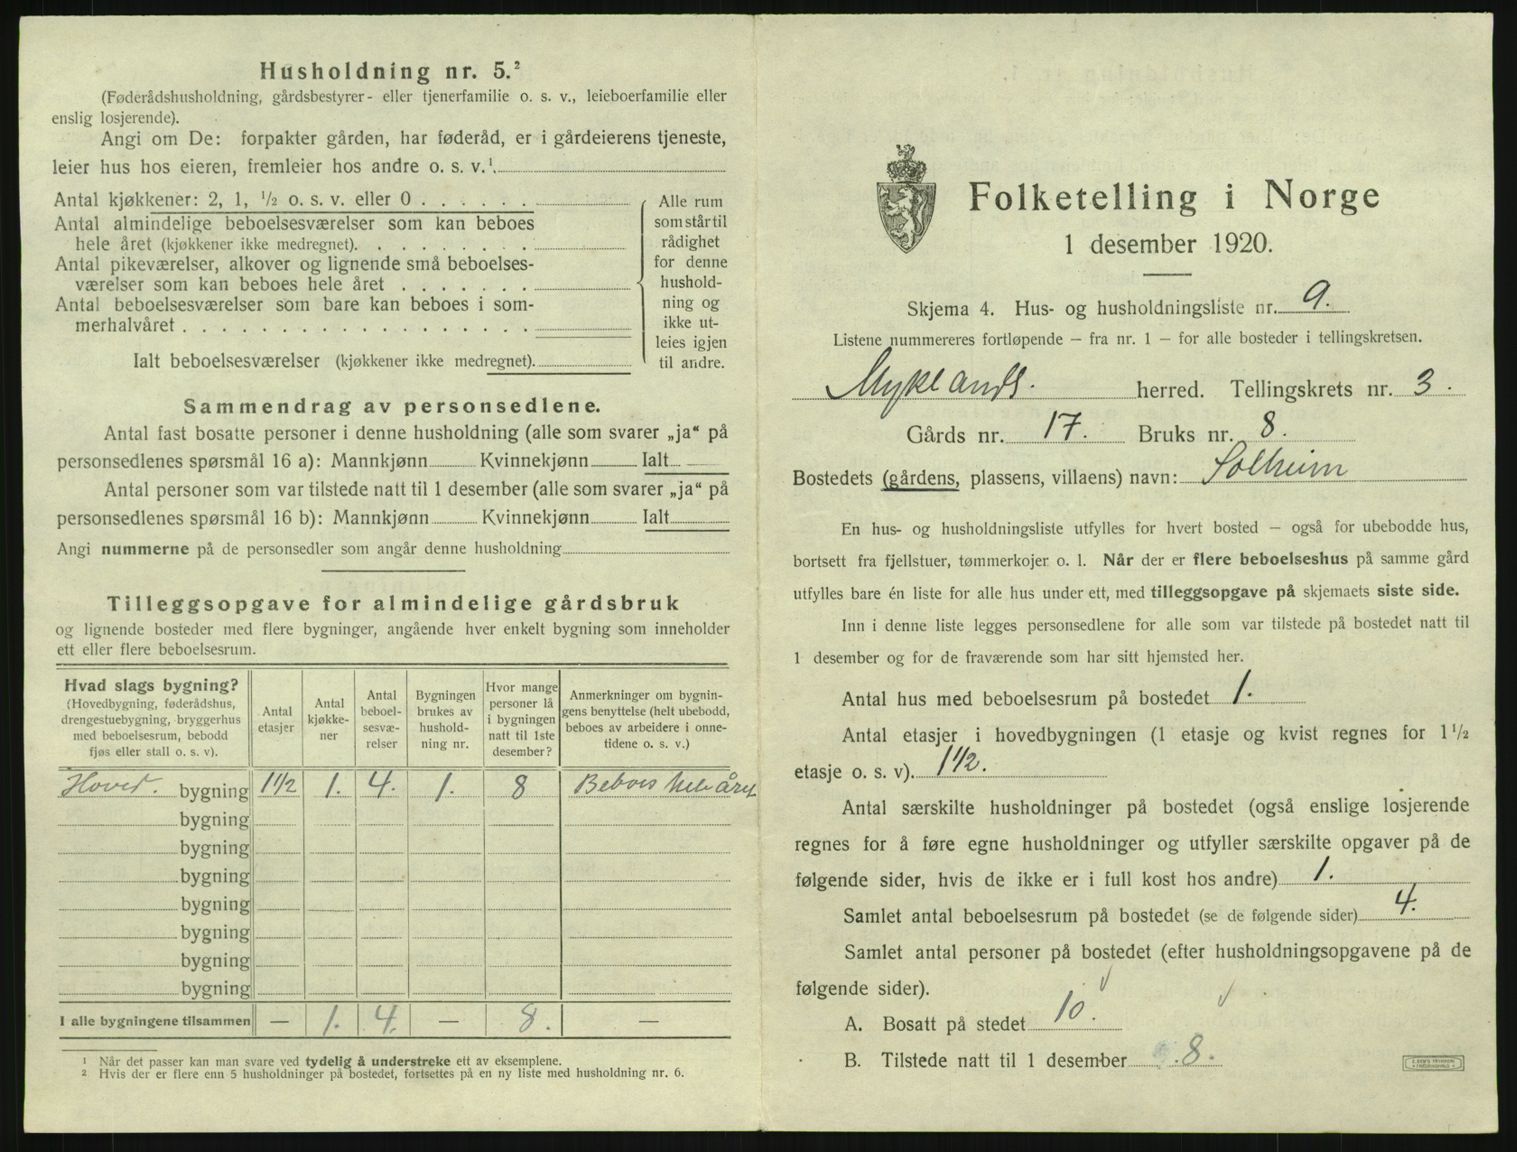 Husholdning nr. 5.²
(Føderådshusholdning, gårdsbestyrer- eller tjenerfamilie o. s. v., leieboerfamilie eller
enslig losjerende).
Angi om De: forpakter gården, har føderåd, er i gårdeierens tjeneste,
leier hus hos eieren, fremleier hos andre o. s. v.¹
Antal kjøkkener: 2, 1, ½ o. s. v. eller 0
Antal almindelige beboelsesværelser som kan beboes
hele året (kjøkkener ikke medregnet).
Antal pikeværelser, alkover og lignende små beboelses-
værelser som kan beboes hele året
Antal beboelsesværelser som bare kan beboes i som-
merhalvåret
Ialt beboelsesværelser (kjøkkener ikke medregnet).
Alle rum
som står til
rådighet
for denne
hushold-
ning og
ikke ut-
leies igjen
til andre.
Sammendrag av personsedlene.
Antal fast bosatte personer i denne husholdning (alle som svarer „ja“ på
personsedlenes spørsmål 16 a): Mannkjønn Kvinnekjønn Ialt
Antal personer som var tilstede natt til 1 desember (alle som svarer „ja“ på
personsedlenes spørsmål 16 b): Mannkjønn Kvinnekjønn Ialt
Angi nummerne på de personsedler som angår denne husholdning
Tilleggsopgave for almindelige gårdsbruk
og lignende bosteder med flere bygninger, angående hver enkelt bygning som inneholder
ett eller flere beboelsesrum.
Hvad slags bygning?
(Hovedbygning, føderådshus,
drengestuebygning, bryggerhus
med beboelsesrum, bebodd
fjøs eller stall o. s. v).
Antal
etasjer
Antal
kjøkke-
ner
Antal
beboel-
sesvæ-
relser
Bygningen
brukes av
hushold-
ning nr.
Hvor mange
personer lå
i bygningen
natt til 1ste
desember?
Anmerkninger om bygnin-
gens benyttelse (helt ubebodd,
beboes av arbeidere i onne-
tidene o. s. v.)
Hoved. bygning 1½ 1. 4. 1. 8 Beboes hele året
bygning
bygning
bygning
bygning
bygning
bygning
bygning
I alle bygningene tilsammen — 1. 4. — 8. —
¹ Når det passer kan man svare ved tydelig å understreke ett av eksemplene.
² Hvis der er flere enn 5 husholdninger på bostedet, fortsettes på en ny liste med husholdning nr. 6.
Folketelling i Norge
1 desember 1920.
Skjema 4. Hus- og husholdningsliste nr. 9.
Listene nummereres fortløpende — fra nr. 1 — for alle bosteder i tellingskretsen.
Myklands. herred. Tellingskrets nr. 3.
Gårds nr. 17. Bruks nr. 8.
Bostedets (gårdens, plassens, villaens) navn: Solheim
En hus- og husholdningsliste utfylles for hvert bosted — også for ubebodde hus,
bortsett fra fjellstuer, tømmerkojer o. l. Når der er flere beboelseshus på samme gård
utfylles bare én liste for alle hus under ett, med tilleggsopgave på skjemaets siste side.
Inn i denne liste legges personsedlene for alle som var tilstede på bostedet natt til
1 desember og for de fraværende som har sitt hjemsted her.
Antal hus med beboelsesrum på bostedet 1.
Antal etasjer i hovedbygningen (1 etasje og kvist regnes for 1½
etasje o. s. v). 1½.
Antal særskilte husholdninger på bostedet (også enslige losjerende
regnes for å føre egne husholdninger og utfyller særskilte opgaver på de
følgende sider, hvis de ikke er i full kost hos andre) 1.
Samlet antal beboelsesrum på bostedet (se de følgende sider) 4.
Samlet antal personer på bostedet (efter husholdningsopgavene på de
følgende sider).
A. Bosatt på stedet 10.
B. Tilstede natt til 1 desember 8.